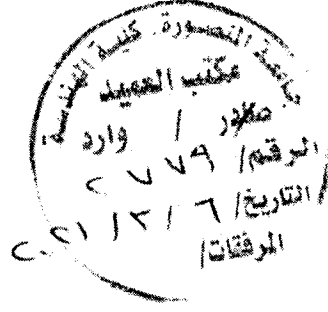 جامعة المنصورة. كلية الهندسة
مكتب العميد
صادر / وارد
الرقم/ ٢٧٧٩
التاريخ/ ٦ / ٣ / ٢٠٢١
المرفقات/